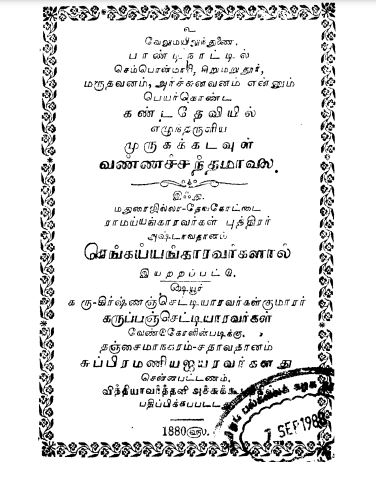 உ
வேலுமயிலுந்துணை.
பாண்டிநாட்டில்
செம்பொன்மாரி, சிறுமருதூர்,
மருதவனம், அர்ச்சுனவனம் என்னும்
பெயர்கொண்ட
கண்டதேவியில்
எழுந்தருளிய
முருகக்கடவுள்
வண்ணச்சந்தமாலை.
இஃது.
மதுரைஜில்லா-தேவகோட்டை
ராமய்யங்காரவர்கள் புத்திரர்
அஷ்டாவதானம்
வேங்கய்யங்காரவர்களால்
இயற்றப்பட்டு.
ஷையூர்
கரு-கிர்ஷ்ணஞ்செட்டியாரவர்கள்குமாரர்
கருப்பஞ்செட்டியாரவர்கள்
வேண்கோளின்படிக்கு.
தஞ்சைமாநகரம்-சதாவதானம்
சுப்பிரமணியஐயரவர்களது
சென்னபட்டணம்,
விந்தியாவர்த்தனி அச்சுக்கூடத்தில்
பதிப்பிக்கப்பட்டது
1880௵.
7 SEP 198